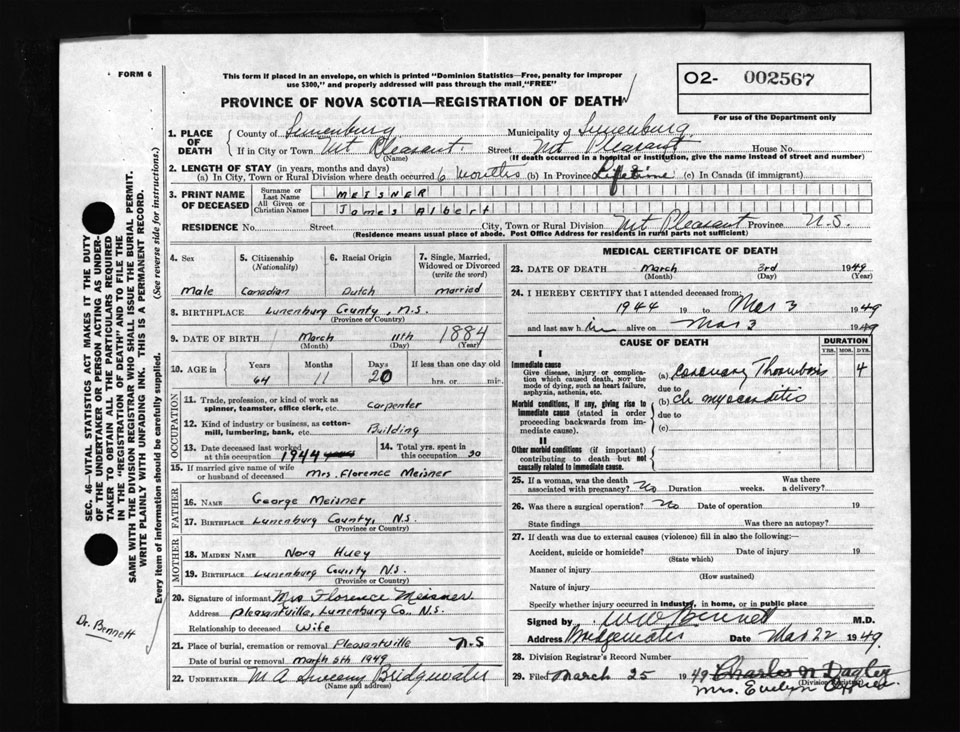 FORM 6
This form if placed in an envelope, on which is printed "Dominion Statistics—Free, penalty for improper
use $300," and properly addressed will pass through the mail, "FREE"
O2- 002567
For use of the Department only
PROVINCE OF NOVA SCOTIA—REGISTRATION OF DEATH
1. PLACE OF DEATH
County of Lunenburg Municipality of Lunenburg
If in City or Town Mt Pleasant Street Mt Pleasant House No.
(Name) (If death occurred in a hospital or institution, give the name instead of street and number)
2. LENGTH OF STAY (in years, months and days)
(a) In City, Town or Rural Division where death occurred 6 months (b) In Province Lifetime (c) In Canada (if immigrant)
3. PRINT NAME OF DECEASED
Surname or Last Name MEISNER
All Given or Christian Names James Albert
RESIDENCE No. Street City, Town or Rural Division Mt Pleasant Province N.S.
(Residence means usual place of abode. Post Office Address for residents in rural parts not sufficient)
4. Sex 5. Citizenship (Nationality) 6. Racial Origin 7. Single, Married, Widowed or Divorced (write the word)
Male Canadian Dutch married
8. BIRTHPLACE Lunenburg County, N.S.
(Province or Country)
9. DATE OF BIRTH March 11th 1884
(Month) (Day) (Year)
10. AGE in Years Months Days If less than one day old
64 11 20 hrs. or min.
OCCUPATION
11. Trade, profession, or kind of work as
spinner, teamster, office clerk, etc. Carpenter
12. Kind of industry or business, as cotton-
mill, lumbering, bank, etc. Building
13. Date deceased last worked
at this occupation 1944
14. Total yrs. spent in
this occupation 30
15. If married give name of wife
or husband of deceased Mrs. Florence Meisner
FATHER
16. NAME George Meisner
17. BIRTHPLACE Lunenburg County, N.S.
(Province or Country)
MOTHER
18. MAIDEN NAME Nora Huey
19. BIRTHPLACE Lunenburg County N.S.
(Province or Country)
20. Signature of informant Mrs Florence Meisner
Address Pleasantville, Lunenburg Co., N.S.
Relationship to deceased Wife
21. Place of burial, cremation or removal Pleasantville N.S
Date of burial or removal March 5th 1949
22. UNDERTAKER M A Sweeny Bridgewater
(Name and address)
MEDICAL CERTIFICATE OF DEATH
23. DATE OF DEATH March 3rd 1949
(Month) (Day) (Year)
24. I HEREBY CERTIFY that I attended deceased from:
1944 19 to Mar 3 1949
and last saw him alive on Mar 3 1949
CAUSE OF DEATH DURATION
YRS. MOS. DYS.
I
Immediate cause
Give disease, injury or complica-
tion which caused death, not the
mode of dying, such as heart failure,
asphyxia, asthenia, etc.
(a) Coronary Thrombosis 4
due to
Morbid conditions, if any, giving rise to
immediate cause (stated in order
proceeding backwards from im-
mediate cause).
(b) ch myocarditis
due to
(c)
II
Other morbid conditions (if important)
contributing to death but not
causally related to immediate cause.
25. If a woman, was the death
associated with pregnancy? No Duration weeks. Was there
a delivery?
26. Was there a surgical operation? No Date of operation 19
State findings Was there an autopsy?
27. If death was due to external causes (violence) fill in also the following:—
Accident, suicide or homicide? Date of injury 19
(State which)
Manner of injury
(How sustained)
Nature of injury
Specify whether injury occurred in industry, in home, or in public place
Signed by W W Bennett M.D.
Address Bridgewater Date Mar 22 1949
28. Division Registrar's Record Number
29. Filed March 25 1949 Charles N Dagley
(Division Registrar)
Mrs. Evelyn
SEC. 46—VITAL STATISTICS ACT MAKES IT THE DUTY
OF THE UNDERTAKER OR PERSON ACTING AS UNDER-
TAKER TO OBTAIN ALL THE PARTICULARS REQUIRED
IN THE "REGISTRATION OF DEATH" AND TO FILE THE
SAME WITH THE DIVISION REGISTRAR WHO SHALL ISSUE THE BURIAL PERMIT.
WRITE PLAINLY WITH UNFADING INK. THIS IS A PERMANENT RECORD.
Every item of information should be carefully supplied. (See reverse side for instructions.)
Dr. Bennett